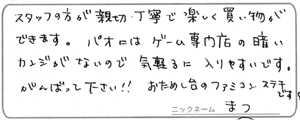 スタッフの方が親切・丁寧で楽しく買い物が
できます。パオにはゲーム専門店の暗い
カンジがないので気軽るに入りやすいです。
がんばって下さい!!おためし台のファミコンステキ
です!
ニックネーム まつ